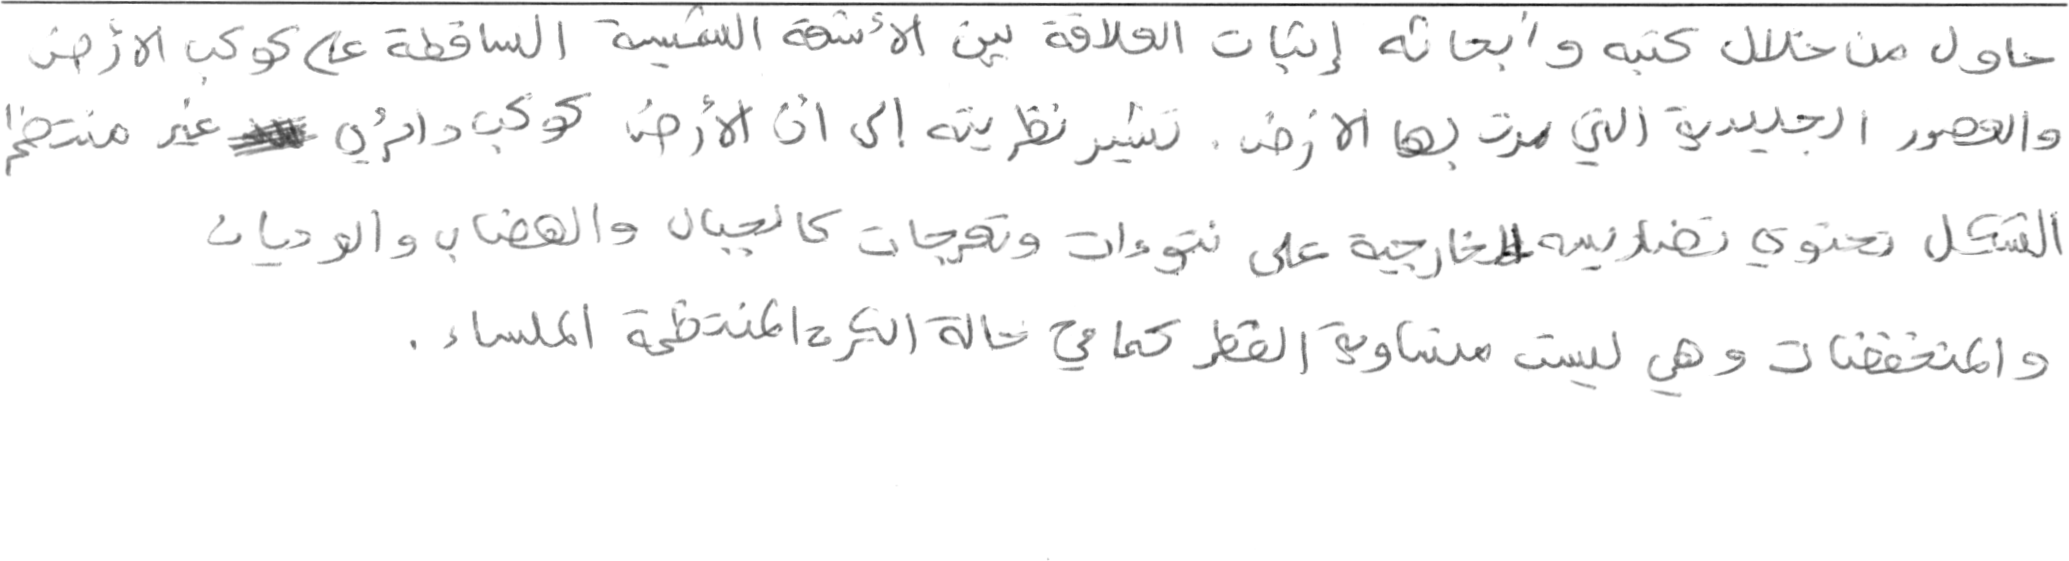 حاول من خلال كتبه وأبحاثه إثبات العلاقة بين الأشعة الشمسية الساقطة على كوكب الأرض
والعصور الجليدية التي مرت بها الأرض. تشير نظريته إلى أن الأرض كوكب دائري غير منتظم
الشكل تحتوي تضاريسه الخارجية على نتوءات وتعرجات كالجبال والهضاب والوديان
والمنخفضات وهي ليست متساوية القطر كما في حالة الكرة المنتظمة الملساء.